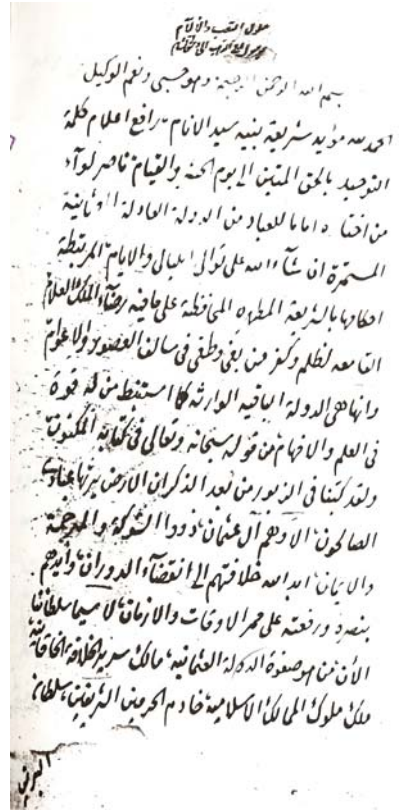 بسم الله الرحمن الرحيم وهو حسبي ونعم الوكيل
الحمد لله مؤيد شريعة نبيه سيد الانام رافع اعلام كلمة
التوحيد بالحق المتين الى يوم الحشر والقيام ناصر لوآء
من اختاره اماما للعباد من الدولة العادلة العثمانية
المستمرة ان شآء الله على توالى الليالى والايام المرتبطة
احكامها بالشريعة المطهره المحافظة على ما فيه رضآء الملك العلام
القامعه لظلم وكفر من بغى وطغى فى سالف العصور والاعوام
وانها هى الدولة الباقيه الوارثه كما استنبط من له قوة
فى العلم والافهام من قوله سبحانه وتعالى فى كتابه المكنون
ولقد كتبنا فى الزبور من بعد الذكر ان الارض يرثها عبادى
الصالحون الا وهم آل عثمان ذووا الشوكة والمرحمة
والايمان ابد الله خلافتهم الى انقضآء الدوران وأيدهم
بنصره ورفعته على ممر الاوقات والازمان لا سيما سلطاننا
الآن من هو صفوة الدولة العثمانية مالك سرير الخلافة الخاقانية
ملك ملوك الممالك الاسلامية خادم الحرمين الشريفين سلطان
البرين